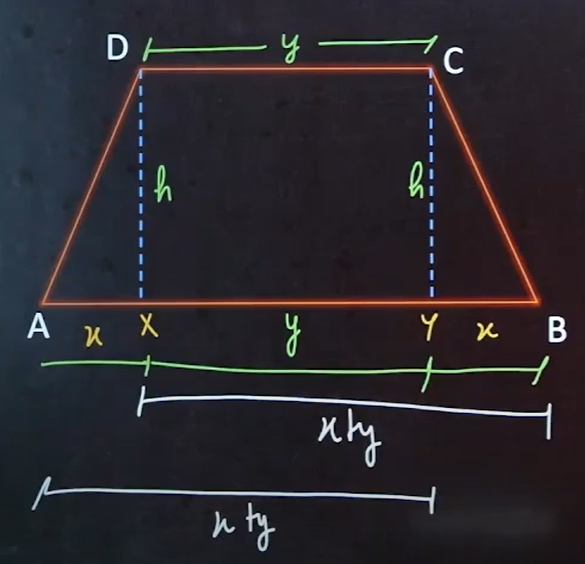 D y C
h h
A x X y Y x B
x+y
x+y